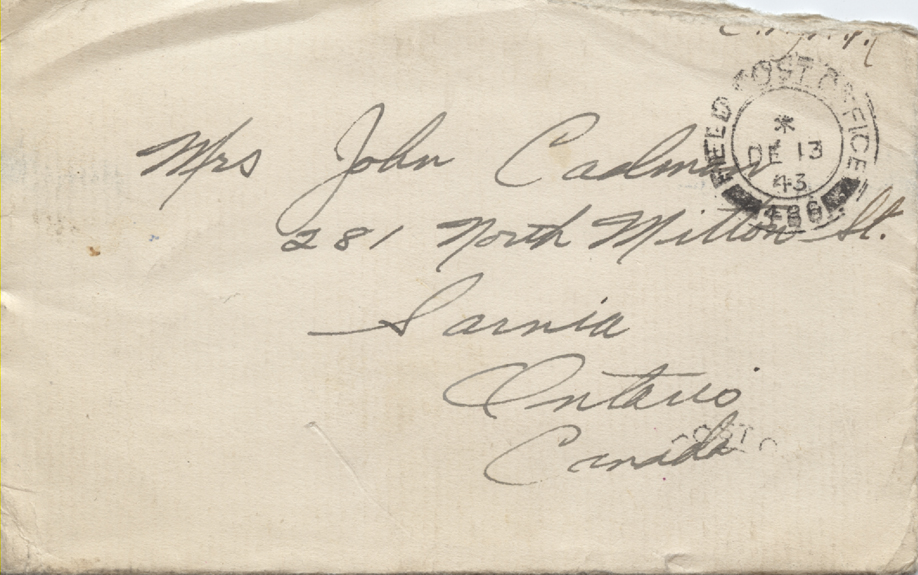 FIELD POST OFFICE
DE 13
43
Mrs John Cadman
281 North Mitton St.
Sarnia
Ontario
Canada
POST